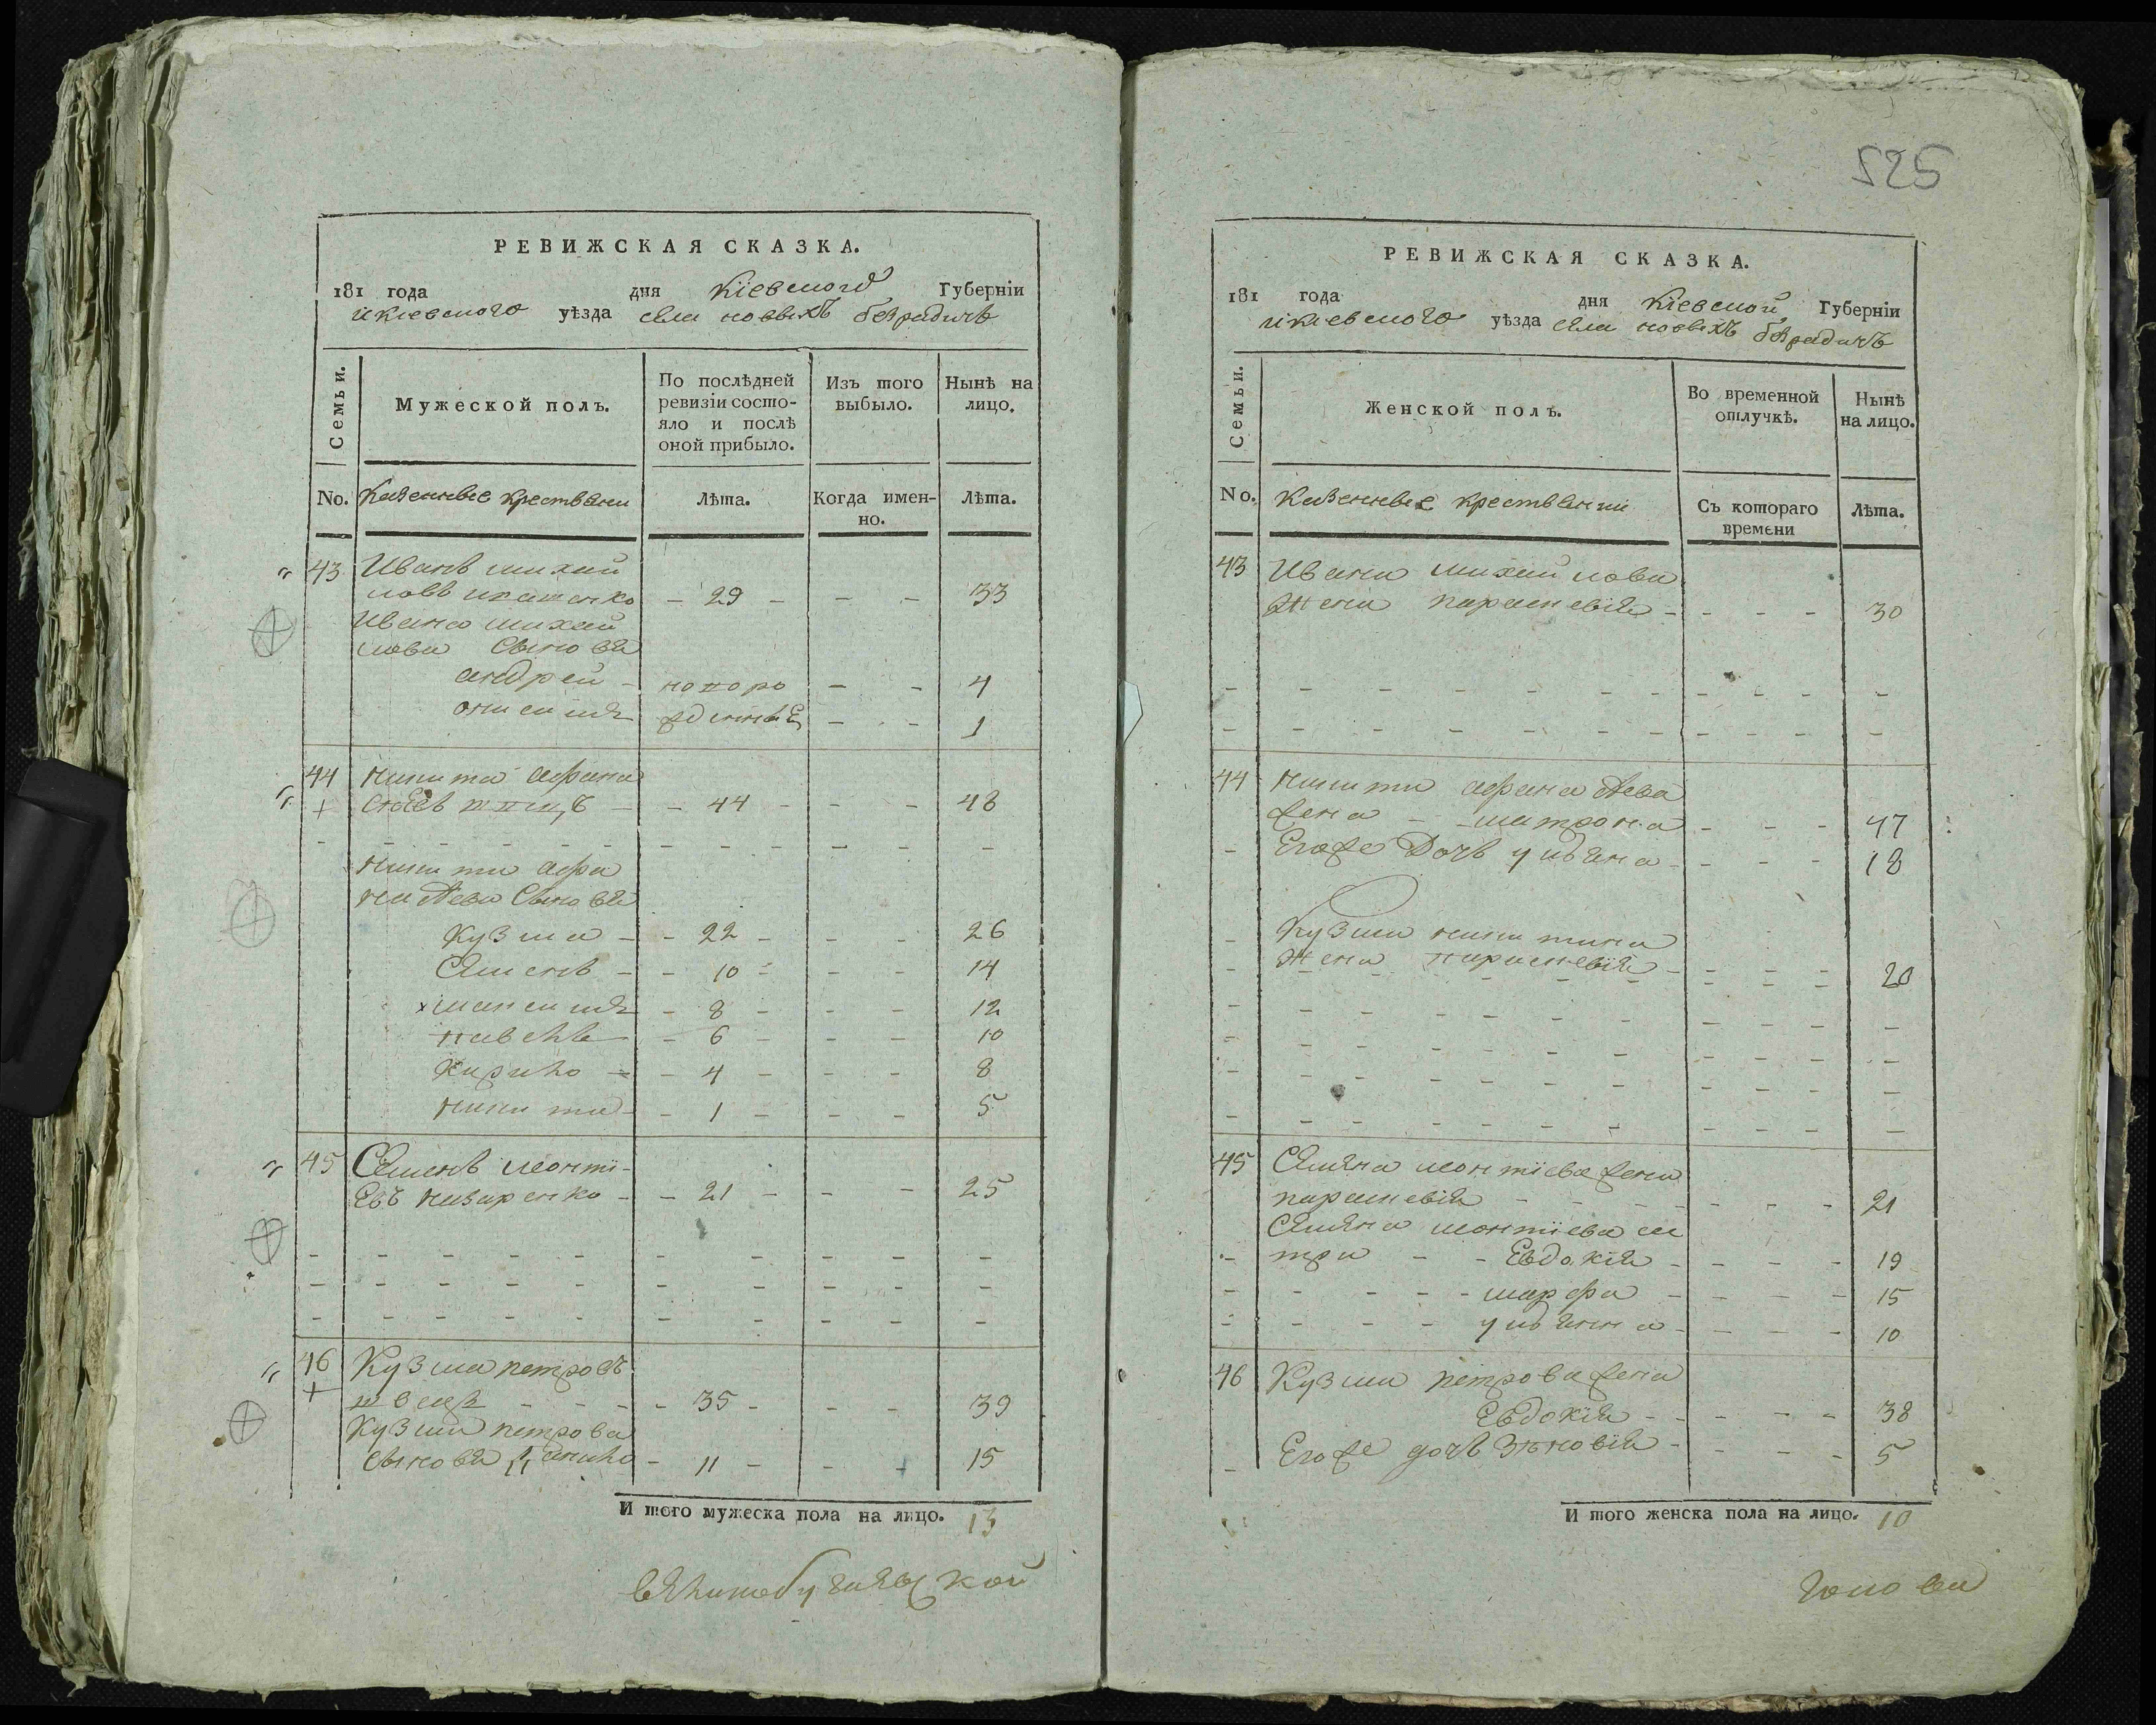 РЕВИЖСКАЯ СКАЗКА.
181 года дня Кіевской Губерніи
и кіевского уѣзда села новыхъ безрадичъ
Семьи. Мужеской полъ. По послѣдней ревизіи состояло и послѣ оной прибыло. Изъ того выбыло. Нынѣ на лицо.
No. Казенные крестьяни Лѣта. Когда именно. Лѣта.
43 Иванъ михай
ловъ - 29 - - - 33
Ивана михай
лова Сыновя
андрей - новоро - - 4
онисимъ жденные - - 1
44 никита афана
сіевъ - - 44 - - - 48
никиты афа
насіева Сыновя
Кузма - - 22 - - - 26
Семенъ - - 10 - - - 14
максимъ - 8 - - - 12
павелъ - 6 - - - 10
Кирило - - 4 - - - 8
никита - - 1 - - - 5
45 Семенъ леонті-
Евъ назаренко - - 21 - - - 25
46 Кузма петровъ
швецъ - - - - 35 - - - 39
Кузми петрова
сыновя данило - 11 - - - 15
И того мужеска пола на лицо. 13
525
РЕВИЖСКАЯ СКАЗКА.
181 года дня Кіевской Губерніи
и кіевского уѣзда села новыхъ безрадичъ
Семьи. Женской полъ. Во временной отлучкѣ. Нынѣ на лицо.
No. Казенные крестьянки Съ котораго времени Лѣта.
43 Ивана михайлова
жена параскевія - - - - 30
44 никиты афанасіева
жена - матрона - - - 47
Егоже Дочь уліяна - - - - 18
Кузми никитина
жена параскевія - - - - 20
45 Семена леонтіева жена
параскевія - - - - - - 21
Семена леонтіева сес
тра - - Евдокія - - - - 19
марфа - - - - 15
уліянна - - - - 10
46 Кузми петрова жена
Евдокія - - - - - 38
Егоже дочь Зѣновія - - - - 5
И того женска пола на лицо. 10
голова